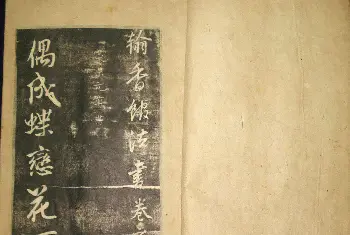 翰香館法書卷
偶成蝶戀花